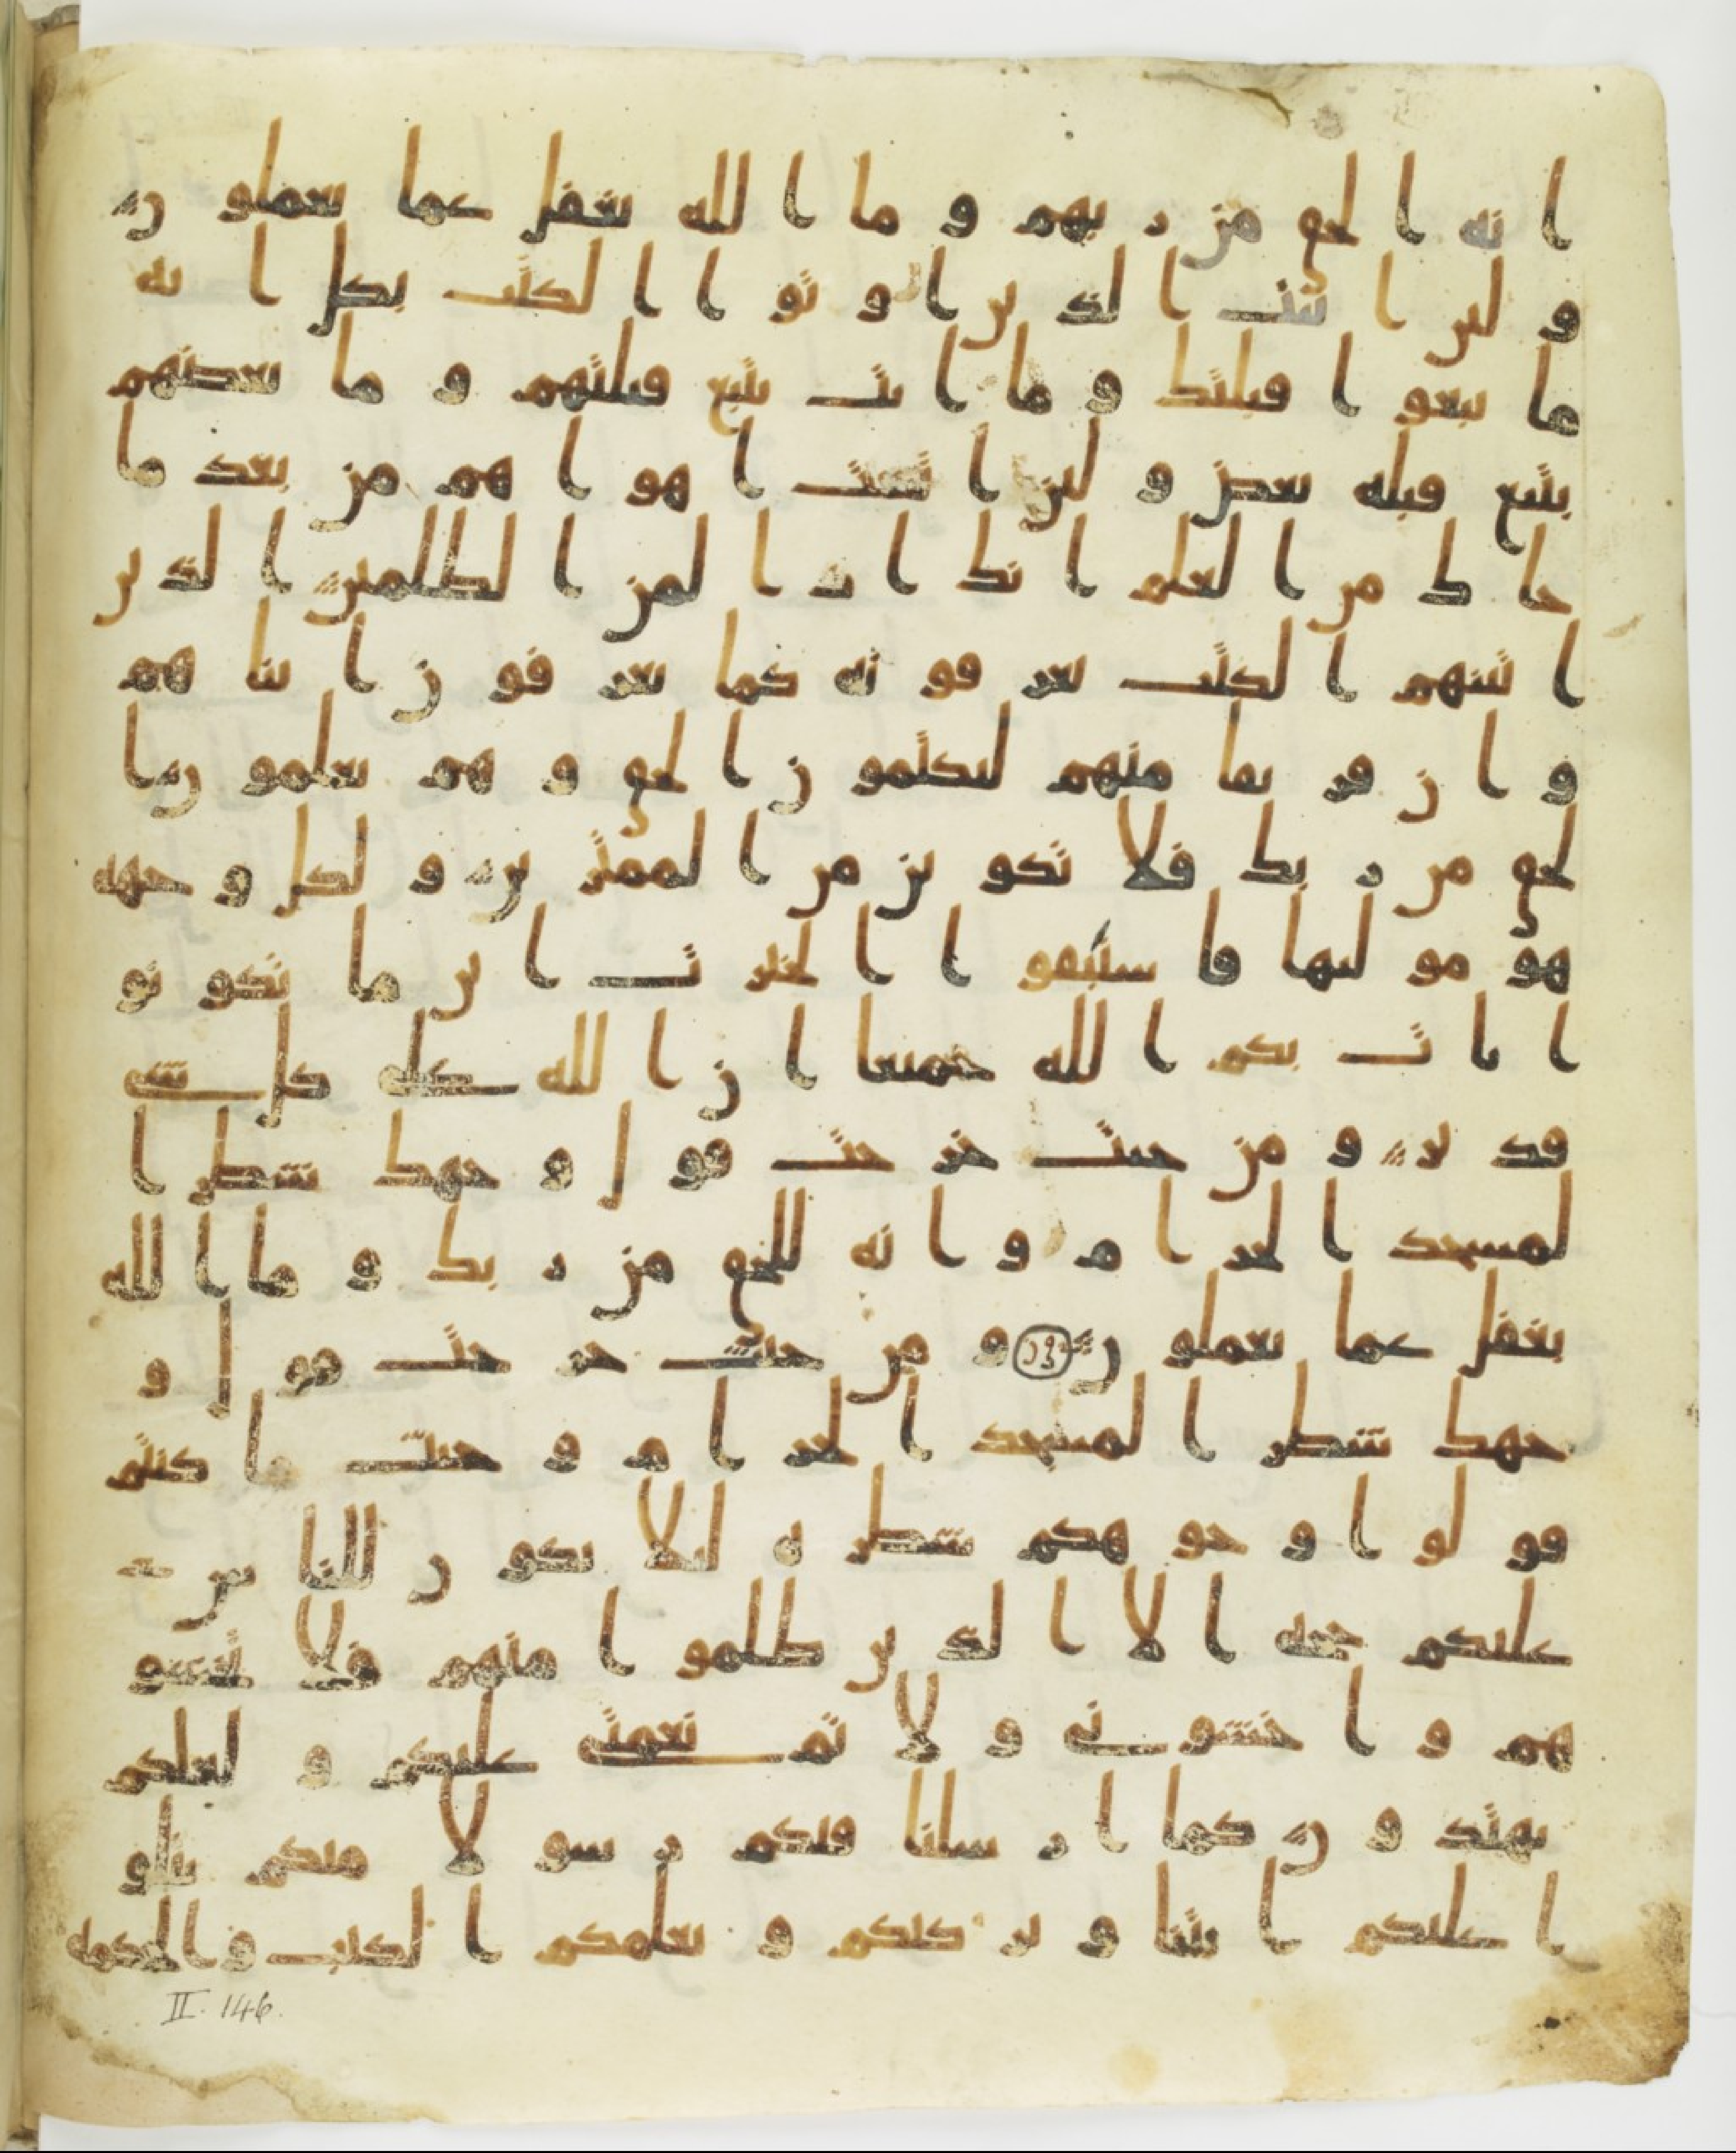 انه الحق من ربهم وما الله بغفل عما يعملون
ولين اتيت الذين اوتوا الكتب بكل ايه
ما تبعوا قبلتك وما انت بتبع قبلتهم وما بعضهم
بتبع قبله بعض ولين اتبعت اهواهم من بعد ما
جاك من العلم انك اذا لمن الظلمين الذين
اتينهم الكتب يعرفونه كما يعرفون ابناهم
وان فريقا منهم ليكتمون الحق وهم يعلمون ا
لحق من ربك فلا تكونن من الممترين ولكل وجهه
هو موليها فاستبقوا الخيرت اين ما تكونو
ا يات بكم الله جميعا ان الله على كل شي
قدير ومن حيث خرجت فول وجهك شطر ا
لمسجد الحرام وانه للحق من ربك وما الله
بغفل عما تعملون ومن حيث خرجت فول و
جهك شطر المسجد الحرام وحيث ما كنتم
فولوا وجوهكم شطره ليلا يكون للناس
عليكم حجه الا الذين ظلموا منهم فلا تخشو
هم واخشوني ولاتم نعمتي عليكم ولعلكم
تهتدون كما ارسلنا فيكم رسولا منكم يتلو
ا عليكم ايتنا ويزكيكم ويعلمكم الكتب والحكمه
II. 146.